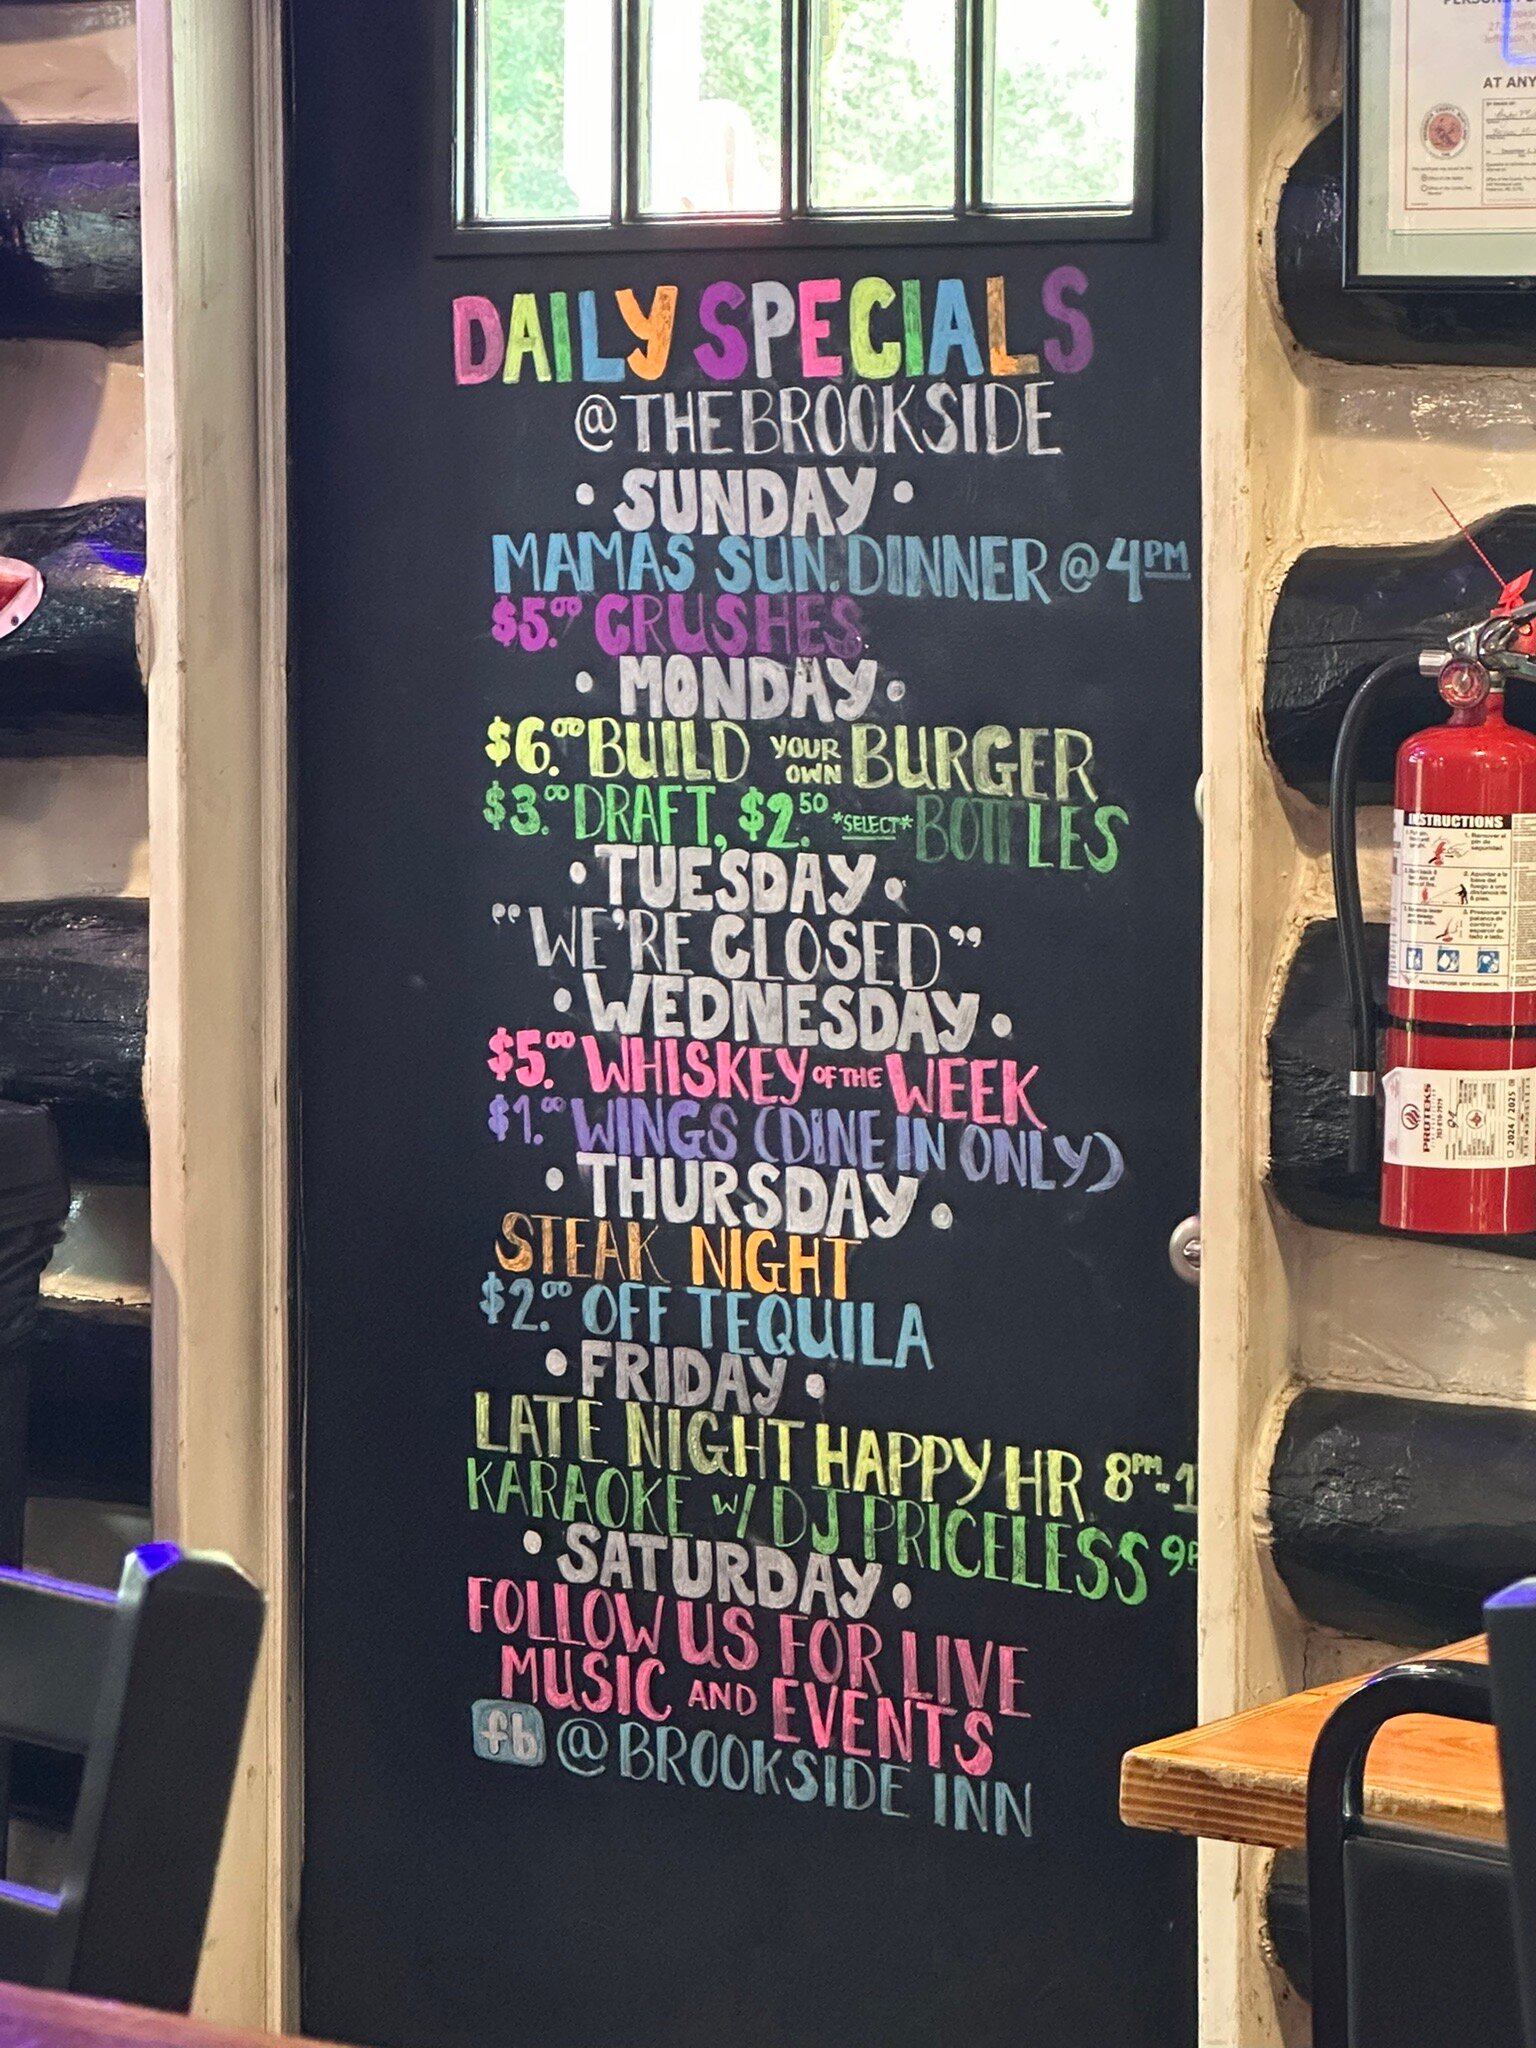 DAILY SPECIALS
@THEBROOKSIDE
• SUNDAY •
MAMAS SUN. DINNER @ 4PM
$5.00 CRUSHES
• MONDAY •
$6.00 BUILD YOUR OWN BURGER
$3.00 DRAFT, $2.50 *SELECT* BOTTLES
• TUESDAY •
"WE'RE CLOSED"
• WEDNESDAY •
$5.00 WHISKEY OF THE WEEK
$1.00 WINGS (DINE IN ONLY)
• THURSDAY •
STEAK NIGHT
$2.00 OFF TEQUILA
• FRIDAY •
LATE NIGHT HAPPY HR 8PM-1
KARAOKE W/ DJ PRICELESS 9P
• SATURDAY •
FOLLOW US FOR LIVE
MUSIC AND EVENTS
fb @BROOKSIDE INN
AT ANY
INSTRUCTIONS
PROTEKS
2024 / 2025